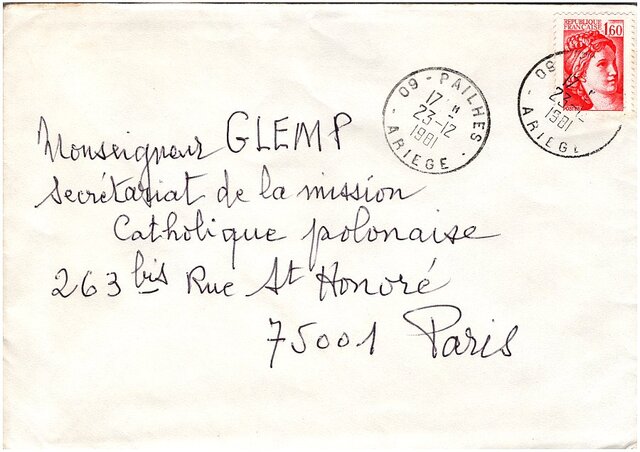 REPUBLIQUE
FRANÇAISE 1,60
09 - PAILHES -
17 H
23-12
1981
ARIEGE
09
23-12
1981
ARIEGE
Monseigneur GLEMP
Secrétariat de la mission
Catholique polonaise
263 bis Rue St Honoré
75001 Paris